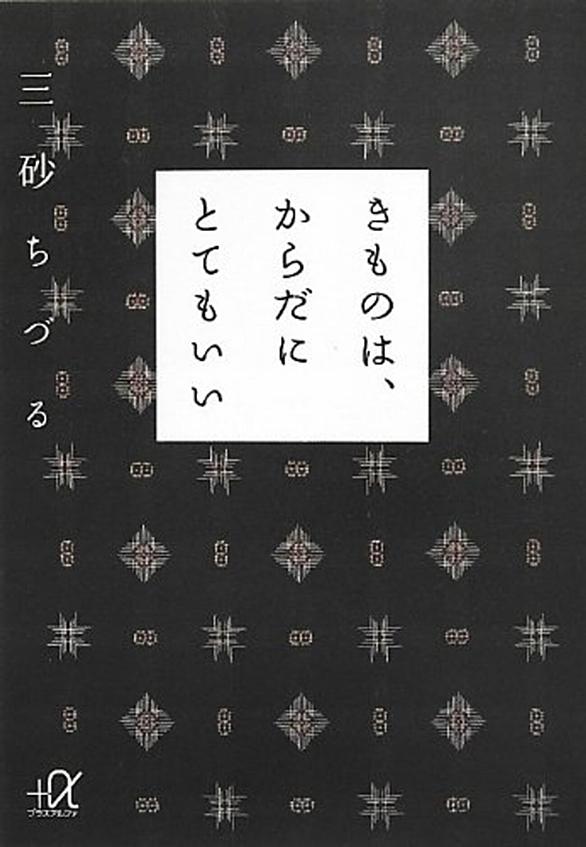 きものは、
からだに
とてもいい
三砂ちづる
+α
プラスアルファ